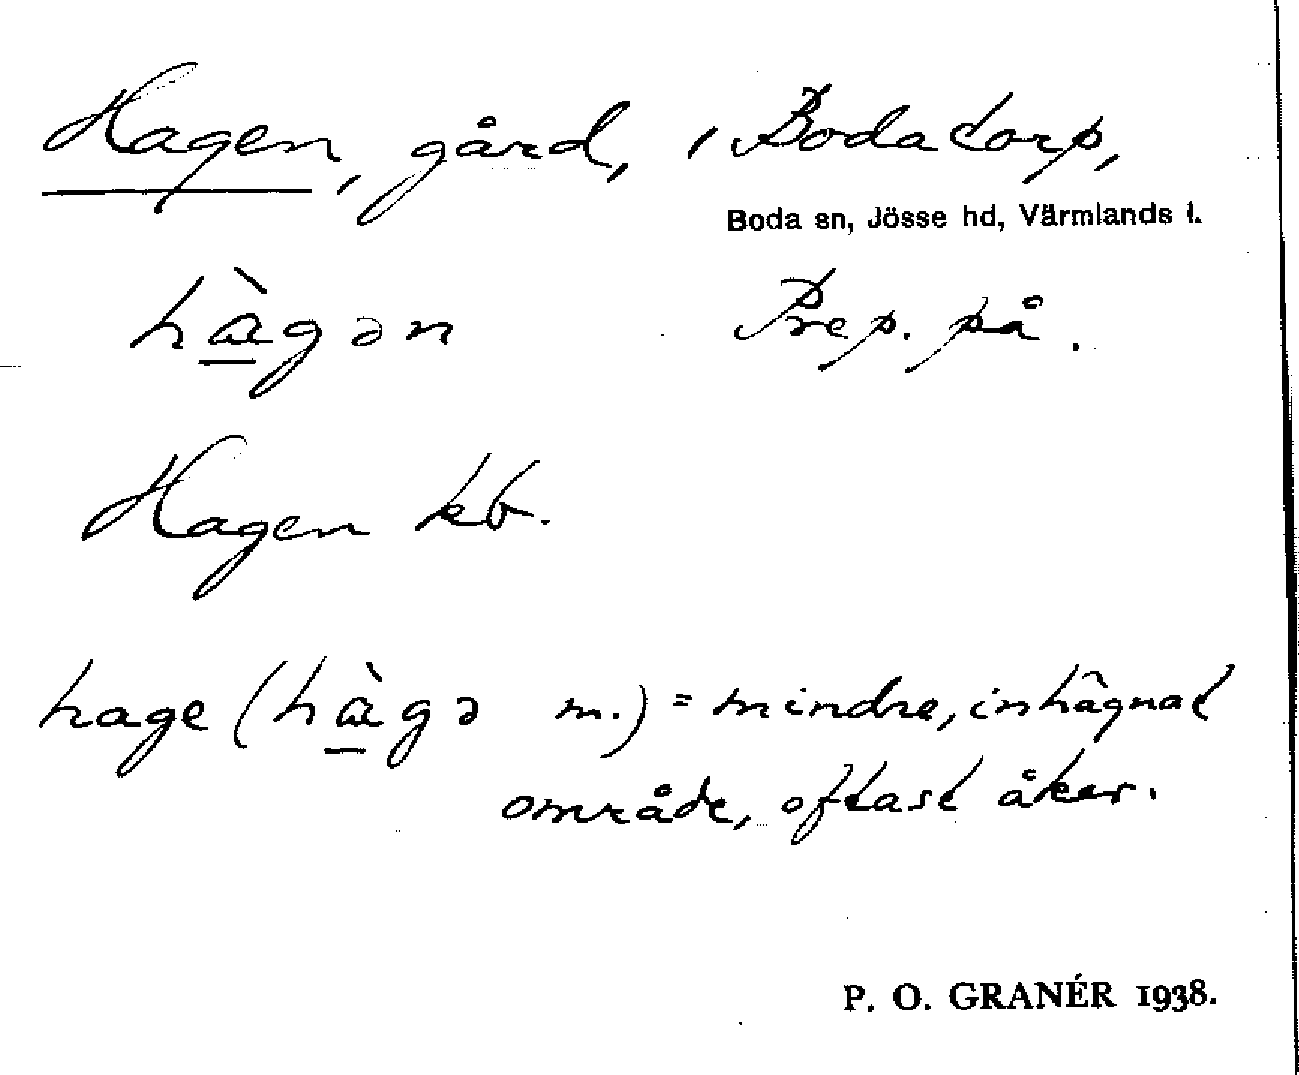 Hagen, gård, i Bodatorp,
Boda sn, Jösse hd, Värmlands l.
hàgən Prep. på.
Hagen kb.
hage (hàgə m.) = mindre, inhägnat
område, oftast åker.
P. O. GRANÉR 1938.